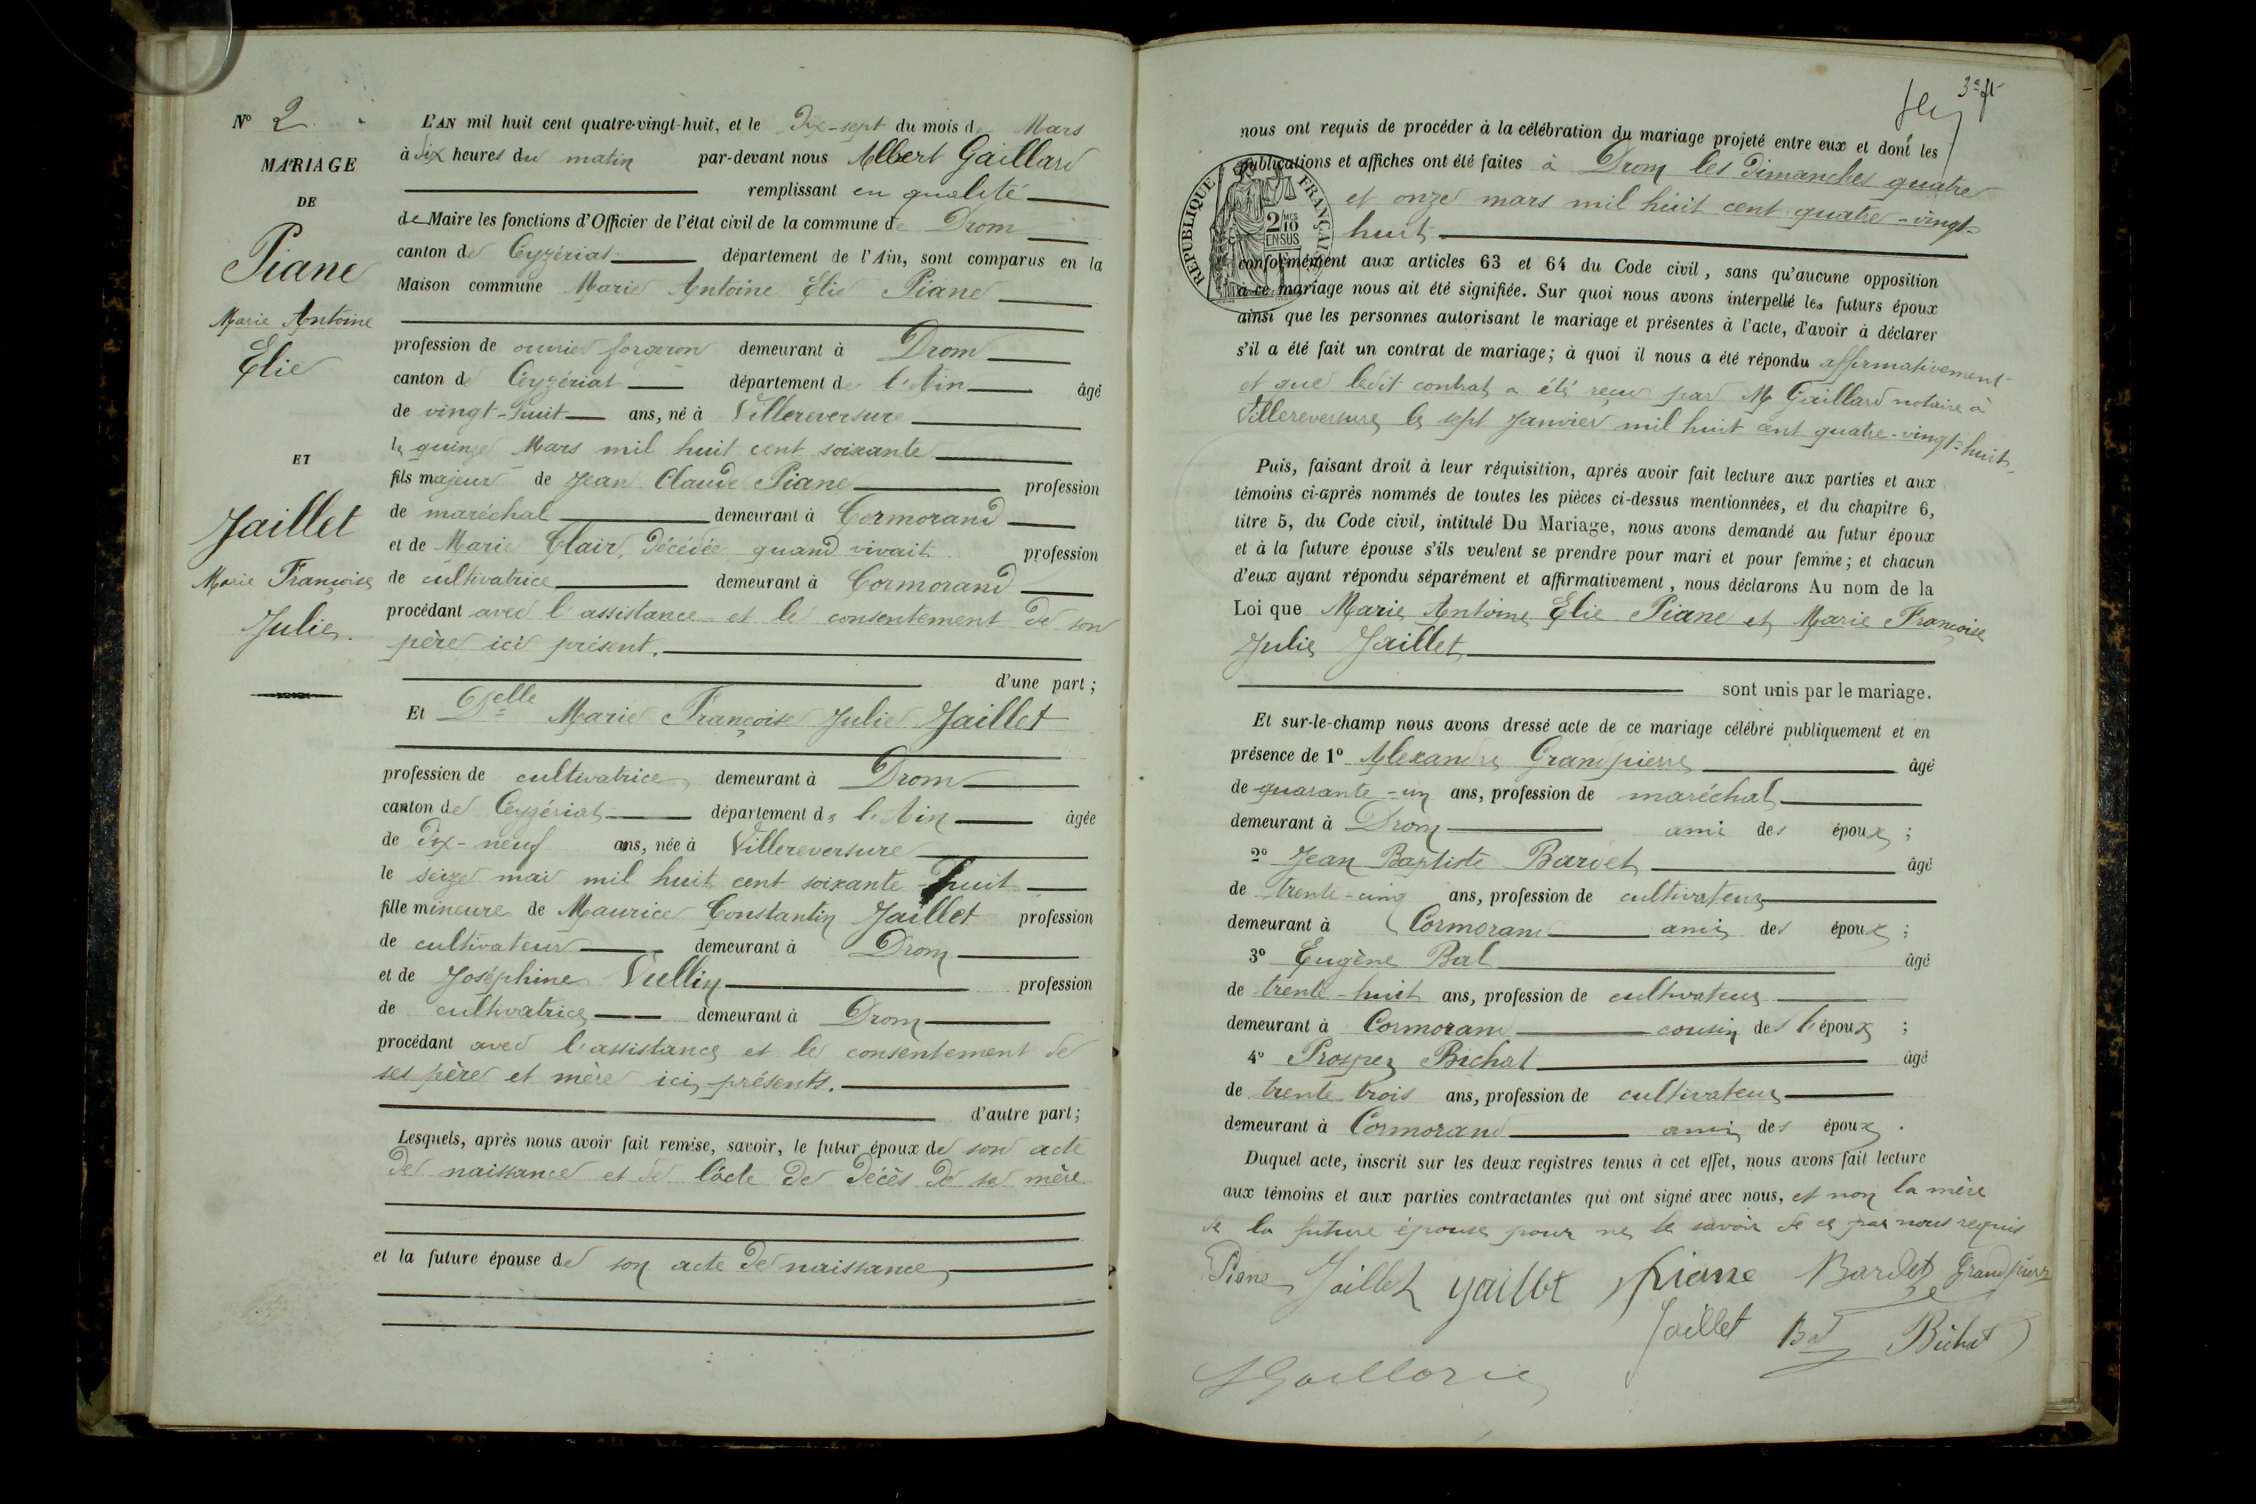 N° 2
MARIAGE
DE
Piane
Marie Antoine
Elie
ET
Jaillet
Marie Françoise
Julie.
L'AN mil huit cent quatre-vingt-huit, et le Dix-sept du mois de Mars
à dix heures du matin par-devant nous Albert Gaillard
remplissant en qualité
de Maire les fonctions d'Officier de l'état civil de la commune de Drom
canton de Ceyzériat département de l'Ain, sont comparus en la
Maison commune Marie Antoine Elie Piane
profession de ouvrier forgeron demeurant à Drom
canton de Ceyzériat département de l'Ain âgé
de vingt-huit ans, né à Villereversure
le quinze Mars mil huit cent soixante
fils majeur de Jean Claude Piane profession
de maréchal demeurant à Cormorand
et de Marie Clair, décédée quand vivait profession
de cultivatrice demeurant à Cormorand
procédant avec l'assistance et le consentement de son
père ici présent.
d'une part;
Et Delle Marie Françoise Julie Jaillet
profession de cultivatrice demeurant à Drom
canton de Ceyzériat département de l'Ain âgée
de dix-neuf ans, née à Villereversure
le seize mai mil huit cent soixante-huit
fille mineure de Maurice Constantin Jaillet profession
de cultivateur demeurant à Drom
et de Joséphine Vullin profession
de cultivatrice demeurant à Drom
procédant avec l'assistance et le consentement de
ses père et mère ici présents.
d'autre part;
Lesquels, après nous avoir fait remise, savoir, le futur époux de son acte
de naissance et de l'acte de décès de sa mère
et la future épouse de son acte de naissance
3e ft
nous ont requis de procéder à la célébration du mariage projeté entre eux et dont les
publications et affiches ont été faites à Drom les dimanches quatre
et onze mars mil huit cent quatre-vingt-
huit
REPUBLIQUE FRANÇAISE
2 MES 10 EN SUS
conformément aux articles 63 et 64 du Code civil, sans qu'aucune opposition
à ce mariage nous ait été signifiée. Sur quoi nous avons interpellé les futurs époux
ainsi que les personnes autorisant le mariage et présentes à l'acte, d'avoir à déclarer
s'il a été fait un contrat de mariage; à quoi il nous a été répondu affirmativement
et que ledit contrat a été reçu par Me Gaillard notaire à
Villereversure le sept Janvier mil huit cent quatre-vingt-huit
Puis, faisant droit à leur réquisition, après avoir fait lecture aux parties et aux
témoins ci-après nommés de toutes les pièces ci-dessus mentionnées, et du chapitre 6,
titre 5, du Code civil, intitulé Du Mariage, nous avons demandé au futur époux
et à la future épouse s'ils veulent se prendre pour mari et pour femme; et chacun
d'eux ayant répondu séparément et affirmativement, nous déclarons Au nom de la
Loi que Marie Antoine Elie Piane et Marie Françoise
Julie Jaillet
sont unis par le mariage.
Et sur-le-champ nous avons dressé acte de ce mariage célébré publiquement et en
présence de 1° Alexandre Grandpierre âgé
de quarante-un ans, profession de maréchal
demeurant à Drom ami des époux ;
2° Jean Baptiste Bardet âgé
de trente-cinq ans, profession de cultivateur
demeurant à Cormorand ami des époux ;
3° Eugène Bal âgé
de trente-huit ans, profession de cultivateur
demeurant à Cormorand cousin de l'époux ;
4° Prosper Bichat âgé
de trente trois ans, profession de cultivateur
demeurant à Cormorand ami des époux .
Duquel acte, inscrit sur les deux registres tenus à cet effet, nous avons fait lecture
aux témoins et aux parties contractantes qui ont signé avec nous, et non la mère
de la future épouse pour ne le savoir de ce par nous requis
Piane Jaillet Jaillet piane Bardet Grandpierre
Jaillet Bal Bichat
A Gaillard